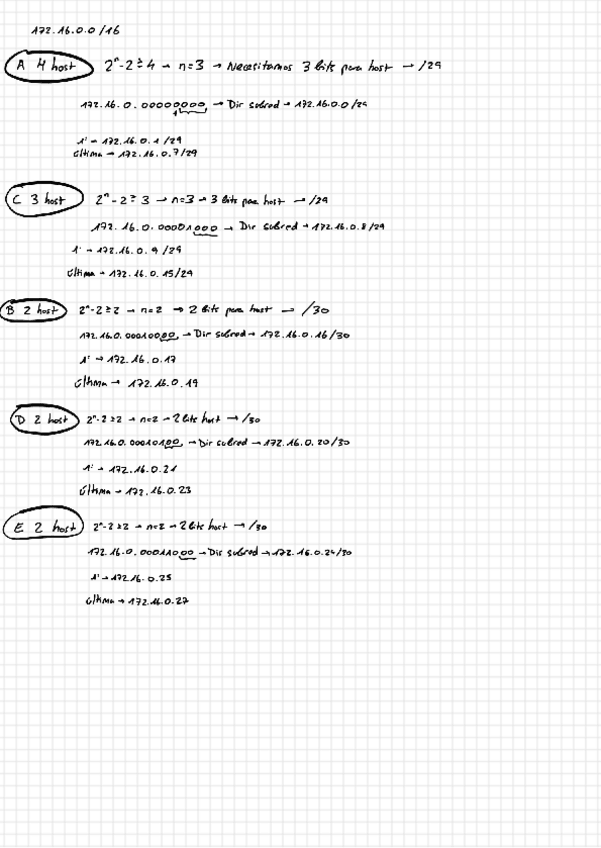 172.16.0.0/16
A 4 host 2ⁿ-2≥4 → n=3 → Necesitamos 3 bits para host → /29
172.16.0.00000000 → Dir subred → 172.16.0.0/29
1ª → 172.16.0.1/29
Última → 172.16.0.7/29
C 3 host 2ⁿ-2≥3 → n=3 → 3 bits para host → /29
172.16.0.00001000 → Dir subred → 172.16.0.8/29
1ª → 172.16.0.9/29
Última → 172.16.0.15/29
B 2 host 2ⁿ-2≥2 → n=2 → 2 bits para host → /30
172.16.0.00010000 → Dir subred → 172.16.0.16/30
1ª → 172.16.0.17
Última → 172.16.0.19
D 2 host 2ⁿ-2≥2 → n=2 → 2 bits host → /30
172.16.0.00010100 → Dir subred → 172.16.0.20/30
1ª → 172.16.0.21
Última → 172.16.0.23
E 2 host 2ⁿ-2≥2 → n=2 → 2 bits host → /30
172.16.0.00011000 → Dir subred → 172.16.0.24/30
1ª → 172.16.0.25
Última → 172.16.0.27